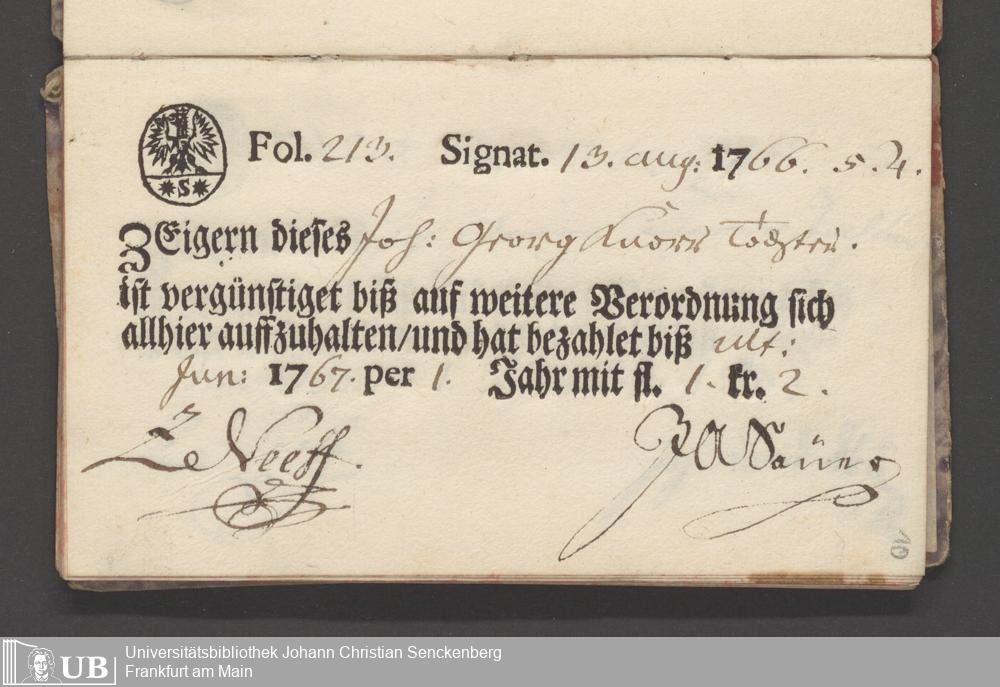 Fol. 213. Signat. 13. aug: 1766. s. 4.
S
ZEigern dieses Joh: Georg Knorr Tochter.
ist vergünstiget biß auf weitere Verordnung sich
allhier auffzuhalten/und hat bezahlet biß ult:
Jun: 1767. per 1. Jahr mit fl. 1. kr. 2.
Neeff. JASäuer
10
UB Universitätsbibliothek Johann Christian Senckenberg
Frankfurt am Main